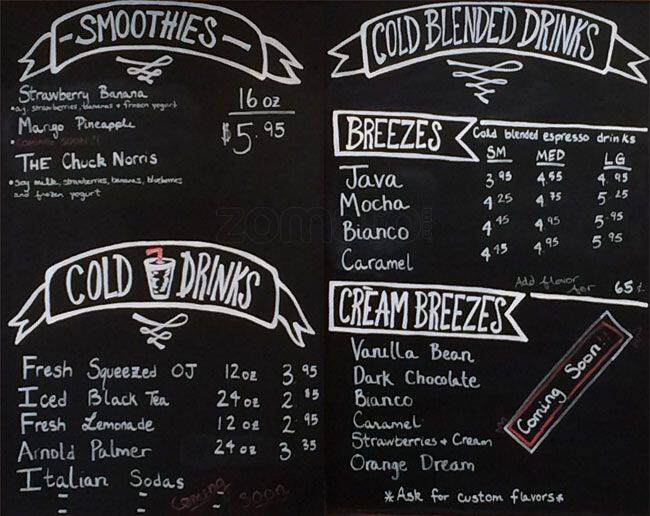 SMOOTHIES
Strawberry Banana
16 oz
• o.j. strawberries, bananas & frozen yogurt
Mango Pineapple
$5.95
• COMING SOON!!
THE Chuck Norris
• soy milk, strawberries, bananas, blueberries
and frozen yogurt
COLD DRINKS
Fresh Squeezed OJ 12oz 3.95
Iced Black Tea 24oz 2.85
Fresh Lemonade 12oz 2.95
Arnold Palmer 24oz 3.35
Italian Sodas
Coming Soon
COLD BLENDED DRINKS
BREEZES Cold blended espresso drinks
SM MED LG
Java 3.95 4.55 4.95
Mocha 4.25 4.75 5.25
Bianco 4.45 4.95 5.95
Caramel 4.45 4.95 5.95
Add flavor for 65¢
CRÈAM BREEZES
Vanilla Bean
Dark Chocolate
Bianco
Caramel
Strawberries & Cream
Orange Dream
Coming Soon!!
*Ask for custom flavors*
zomato